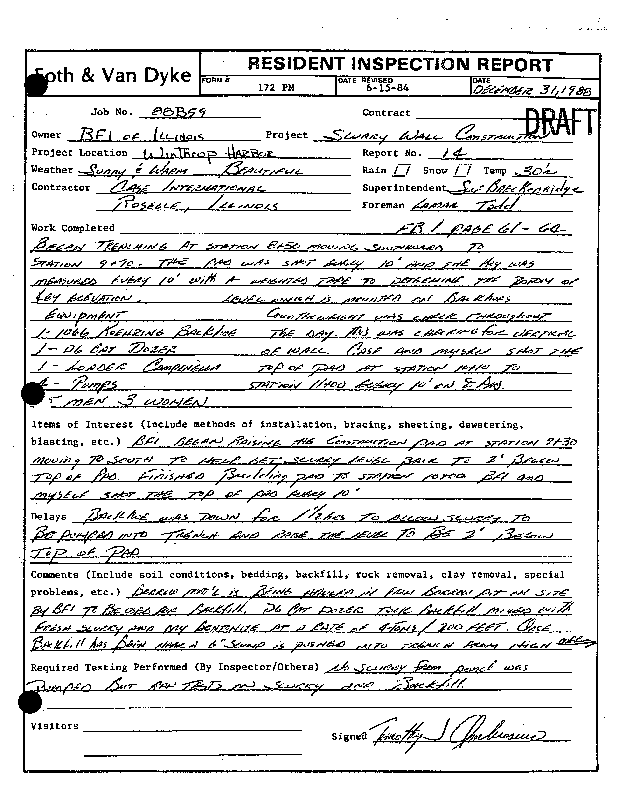 Foth & Van Dyke
RESIDENT INSPECTION REPORT
FORM #
172 PM
DATE REVISED
6-15-84
DATE
DECEMBER 31, 1988
Job No. 88B59 Contract
DRAFT
Owner BFI of Illinois Project Slurry Wall Construction
Project Location Winthrop Harbor Report No. 14
Weather Sunny & Warm Beautiful Rain Snow Temp 30's
Contractor Case International Superintendent Breckenridge
Roselle, Illinois Foreman Lamar Todd
Work Completed FB 1 PAGE 61-62
Began Trenching at Station 8+50 moving southward to
Station 9+70. The pad was shot every 10' and the key was
measured every 10' with a weighted tape to determine the bottom of
key elevation. level which is mounted on Backhoe
Equipment Counterweight was check throughout
1-1066 Koehring Backhoe the day. this was checking for vertical
1-D6 Cat Dozer of wall. Case and myself shot the
1-Loader top of pad at station to
4-Pumps station 11+00 every 10' on
5 men 3 women
Items of Interest (Include methods of installation, bracing, sheeting, dewatering,
blasting, etc.) BFI Began Raising the Construction pad at station 9+30
moving to south to help get slurry level back to 2' Below
top of pad. Finished Building pad to station BFI and
myself shot the top of pad every 10'
Delays Backhoe was down for 1½ hrs to allow slurry to
Be pumped into trench and raise the level to be 2' Below
top of pad
Comments (Include soil conditions, bedding, backfill, rock removal, clay removal, special
problems, etc.) Borrow mat'l is Being hauled in from Borrow pit on site
By BFI to Be used for Backfill. D6 Cat Dozer Backfill mixed with
fresh slurry and dry Bentonite at a rate of 4 tons/200 feet. Once
Backfill has Been a 6" slump is pushed into trench from
Required Testing Performed (By Inspector/Others) No slurry from was
Pumped But ran tests on slurry and Backfill.
Visitors
Signed Timothy J